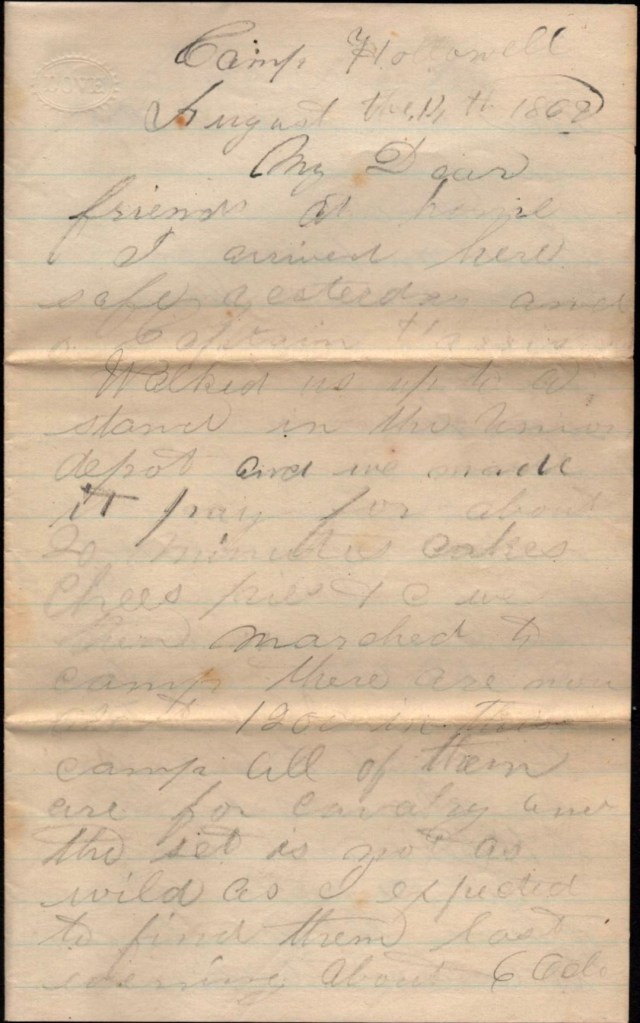 DOVE
Camp Hollowell
August the 14th 1862
My Dear
friends at home
I arrived here
safe yesterday and
Captain
Walked us up to a
stand in the Union
depot and we made
it pay for about
20 minutes cakes
Chees pies & C we
then marched to
camp there are now
about 1200 in this
camp all of them
are for cavalry and
the set is not as
wild as I expected
to find them last
evening about 6 Oclo